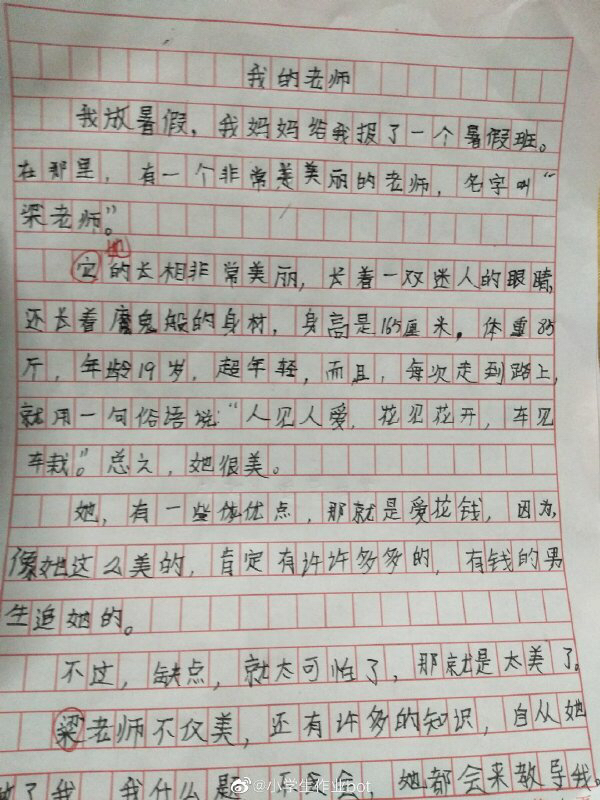 我的老师
我放暑假，我妈妈给我报了一个暑假班。
在那里，有一个非常美丽的老师，名字叫“
梁老师”。
她
它的长相非常美丽，长着一双迷人的眼睛，
还长着魔鬼般的身材，身高是165厘米，体重85
斤，年龄19岁，超年轻，而且，每次走到路上，
就用一句俗语说：“人见人爱，花见花开，车见
车栽”。总之，她很美。
她，有一些优点，那就是爱花钱，因为，
像她这么美的，肯定有许许多多的，有钱的男
生追她的。
不过，缺点，就太可怕了，那就是太美了。
梁老师不仅美，还有许多的知识，自从她
教了我，我什么题 不会 她都会来教导我。
@小学生作业bot